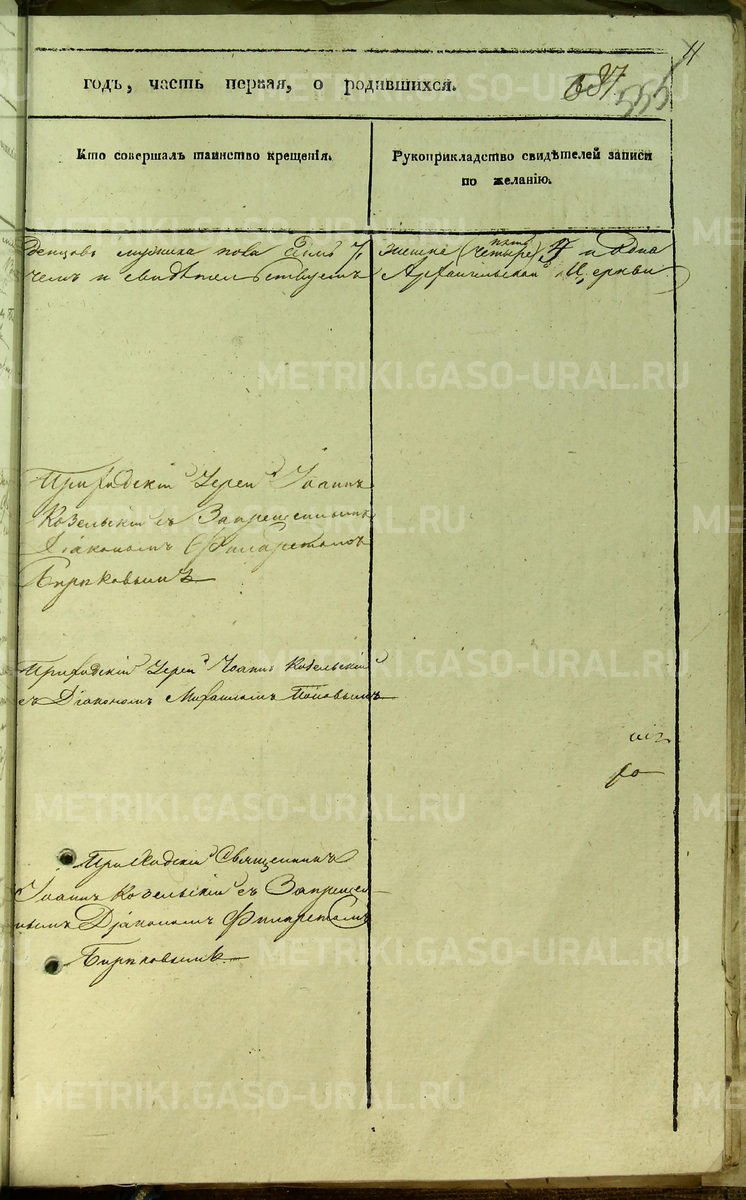 11
годъ, часть первая, о родившихся.
687
555
Кто совершалъ таинство крещенія.
Рукоприкладство свидѣтелей записи
по желанію.
денцовъ мужеска пола
женска (четыре) пять и одна
чемъ и свидѣтельствуетъ
Архангельской Церкви
Приходскій Іерей Іоаннъ
Козельскій съ Запрещеннымъ
Діакономъ Филаретомъ
Бирюковымъ
Приходскій Іерей Іоаннъ Козельскій
съ Діакономъ Михаиломъ Поповымъ
Приходскій Священникъ
Іоаннъ Козельскій съ Запрещен-
нымъ Діакономъ Филаретомъ
Бирюковымъ
METRIKI.GASO-URAL.RU